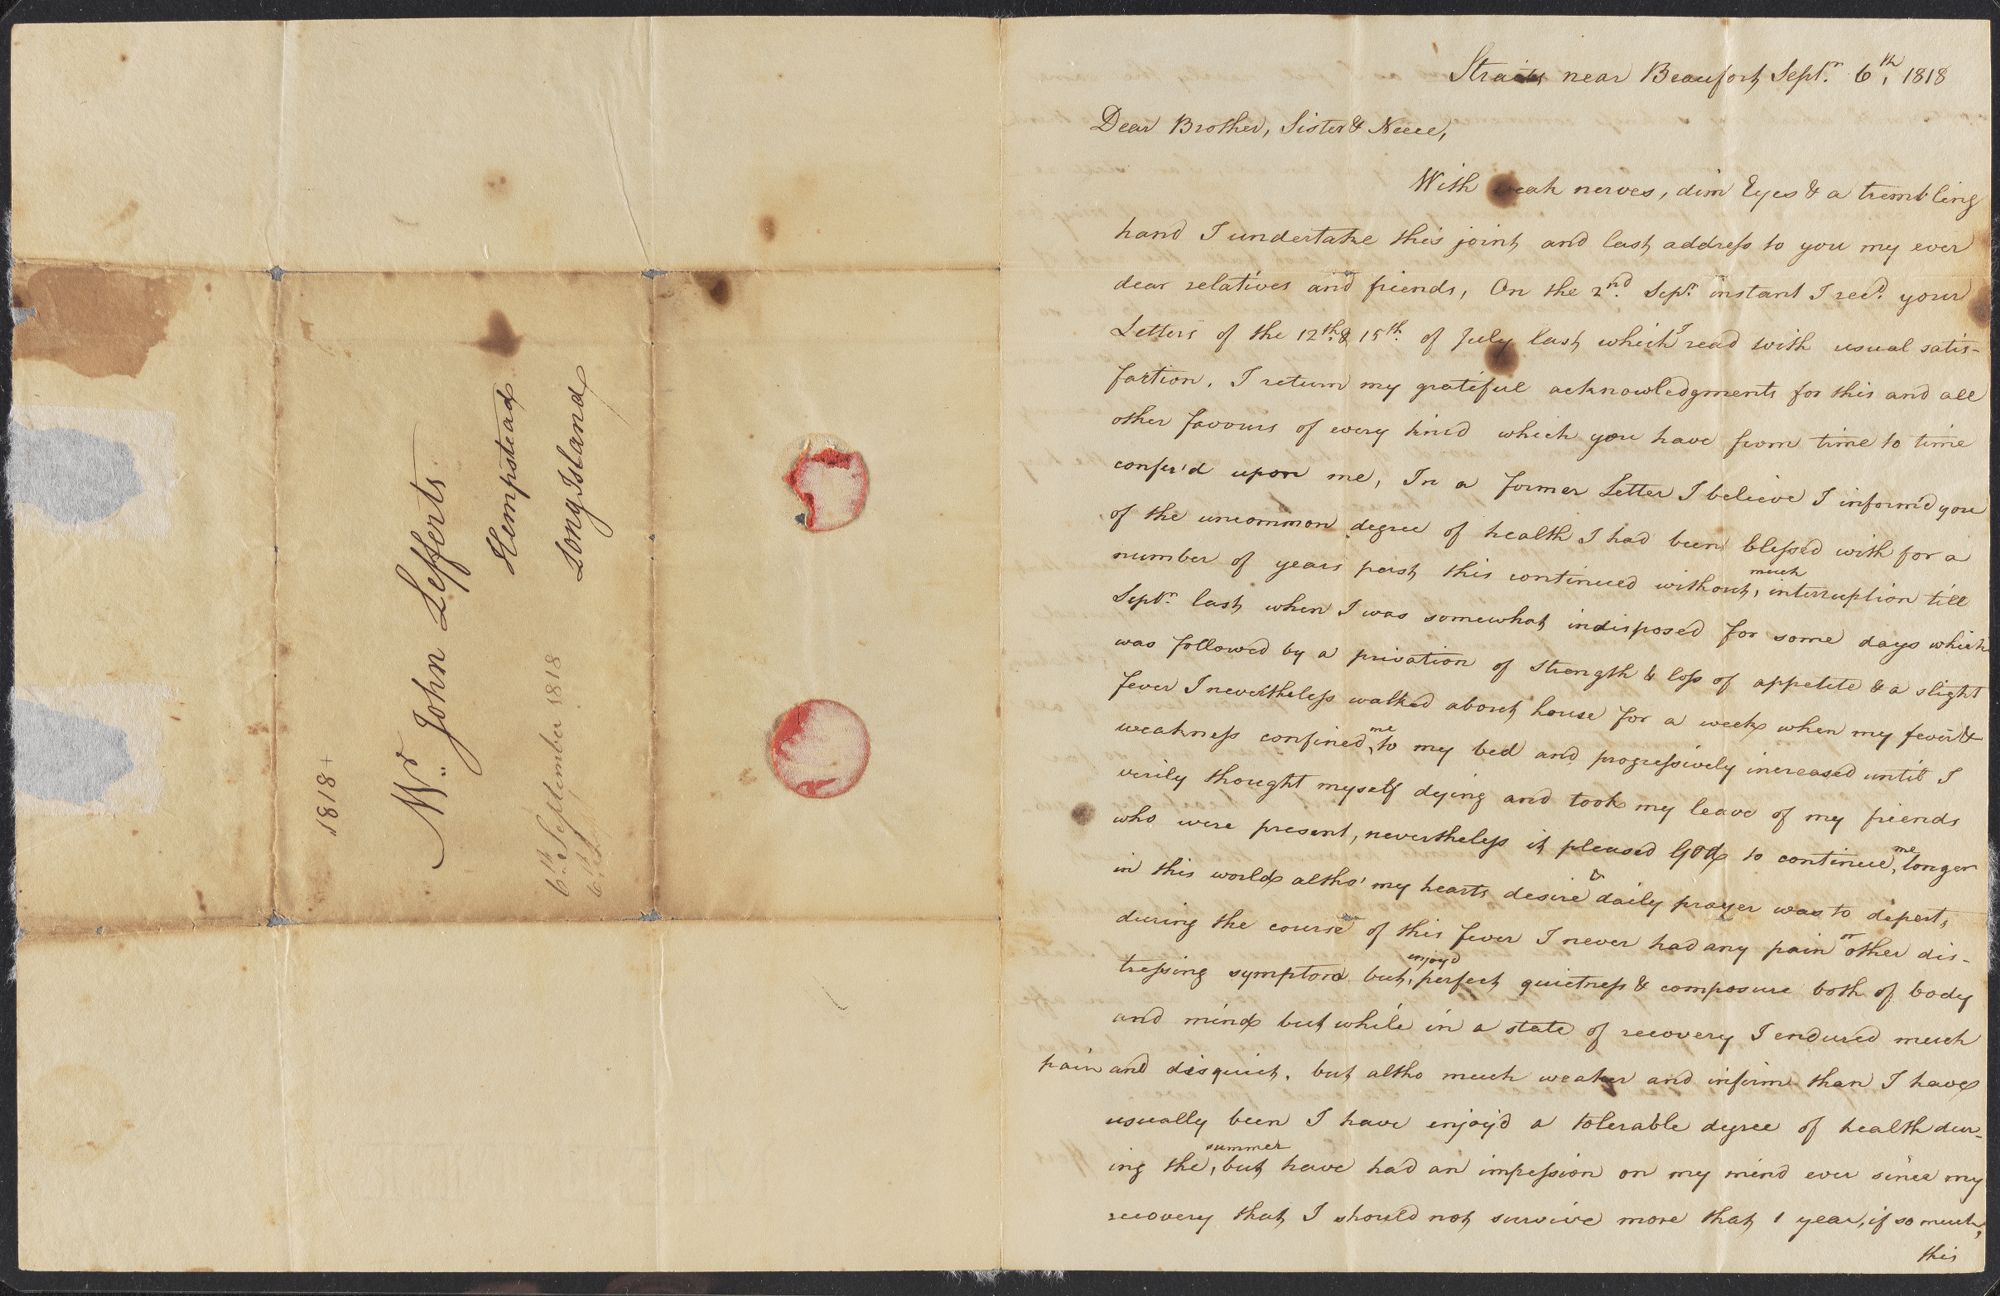 1818+
Mr. John Lefferts
Hempstead
Long Island
6th. September 1818
Straits near Beaufort, Septr. 6th, 1818
Dear Brother, Sister & Neece,
With weak nerves, dim Eyes & a trembling
hand I undertake this joint and last address to you my ever
dear relatives and friends, On the 2nd. Sepr. instant I recd. your
Letters of the 12th. & 15th. of July last, which I read with usual satis-
faction. I return my grateful acknowledgments for this and all
other favours of every kind which you have from time to time
confer'd upon me, In a former Letter I believe I inform'd you
of the uncommon degree of health I had been blessed with for a
number of years past, this continued without, much interruption till
Septr. last, when I was somewhat indisposed for some days which
was followed by a privation of Strength & loss of appetite & a slight
fever I nevertheless walked about, house for a week when my fever &
weakness confined, me to my bed and progressively increased until I
verily thought myself dying and took my leave of my friends
who were present, nevertheless it pleased God to continue, me longer
in this world altho' my hearts desire & daily prayer was to depart,
during the course of this fever I never had any pain or other dis-
tressing symptom but, enjoy'd perfect quietness & composure both of body
and mind but while in a state of recovery I endured much
pain and disquiet. but altho much weaker and infirm than I have
usually been I have enjoy'd a tolerable degree of health dur-
ing the, summer but have had an impession on my mind ever since my
recovery that I should not survive more that 1 year, if so much,
this